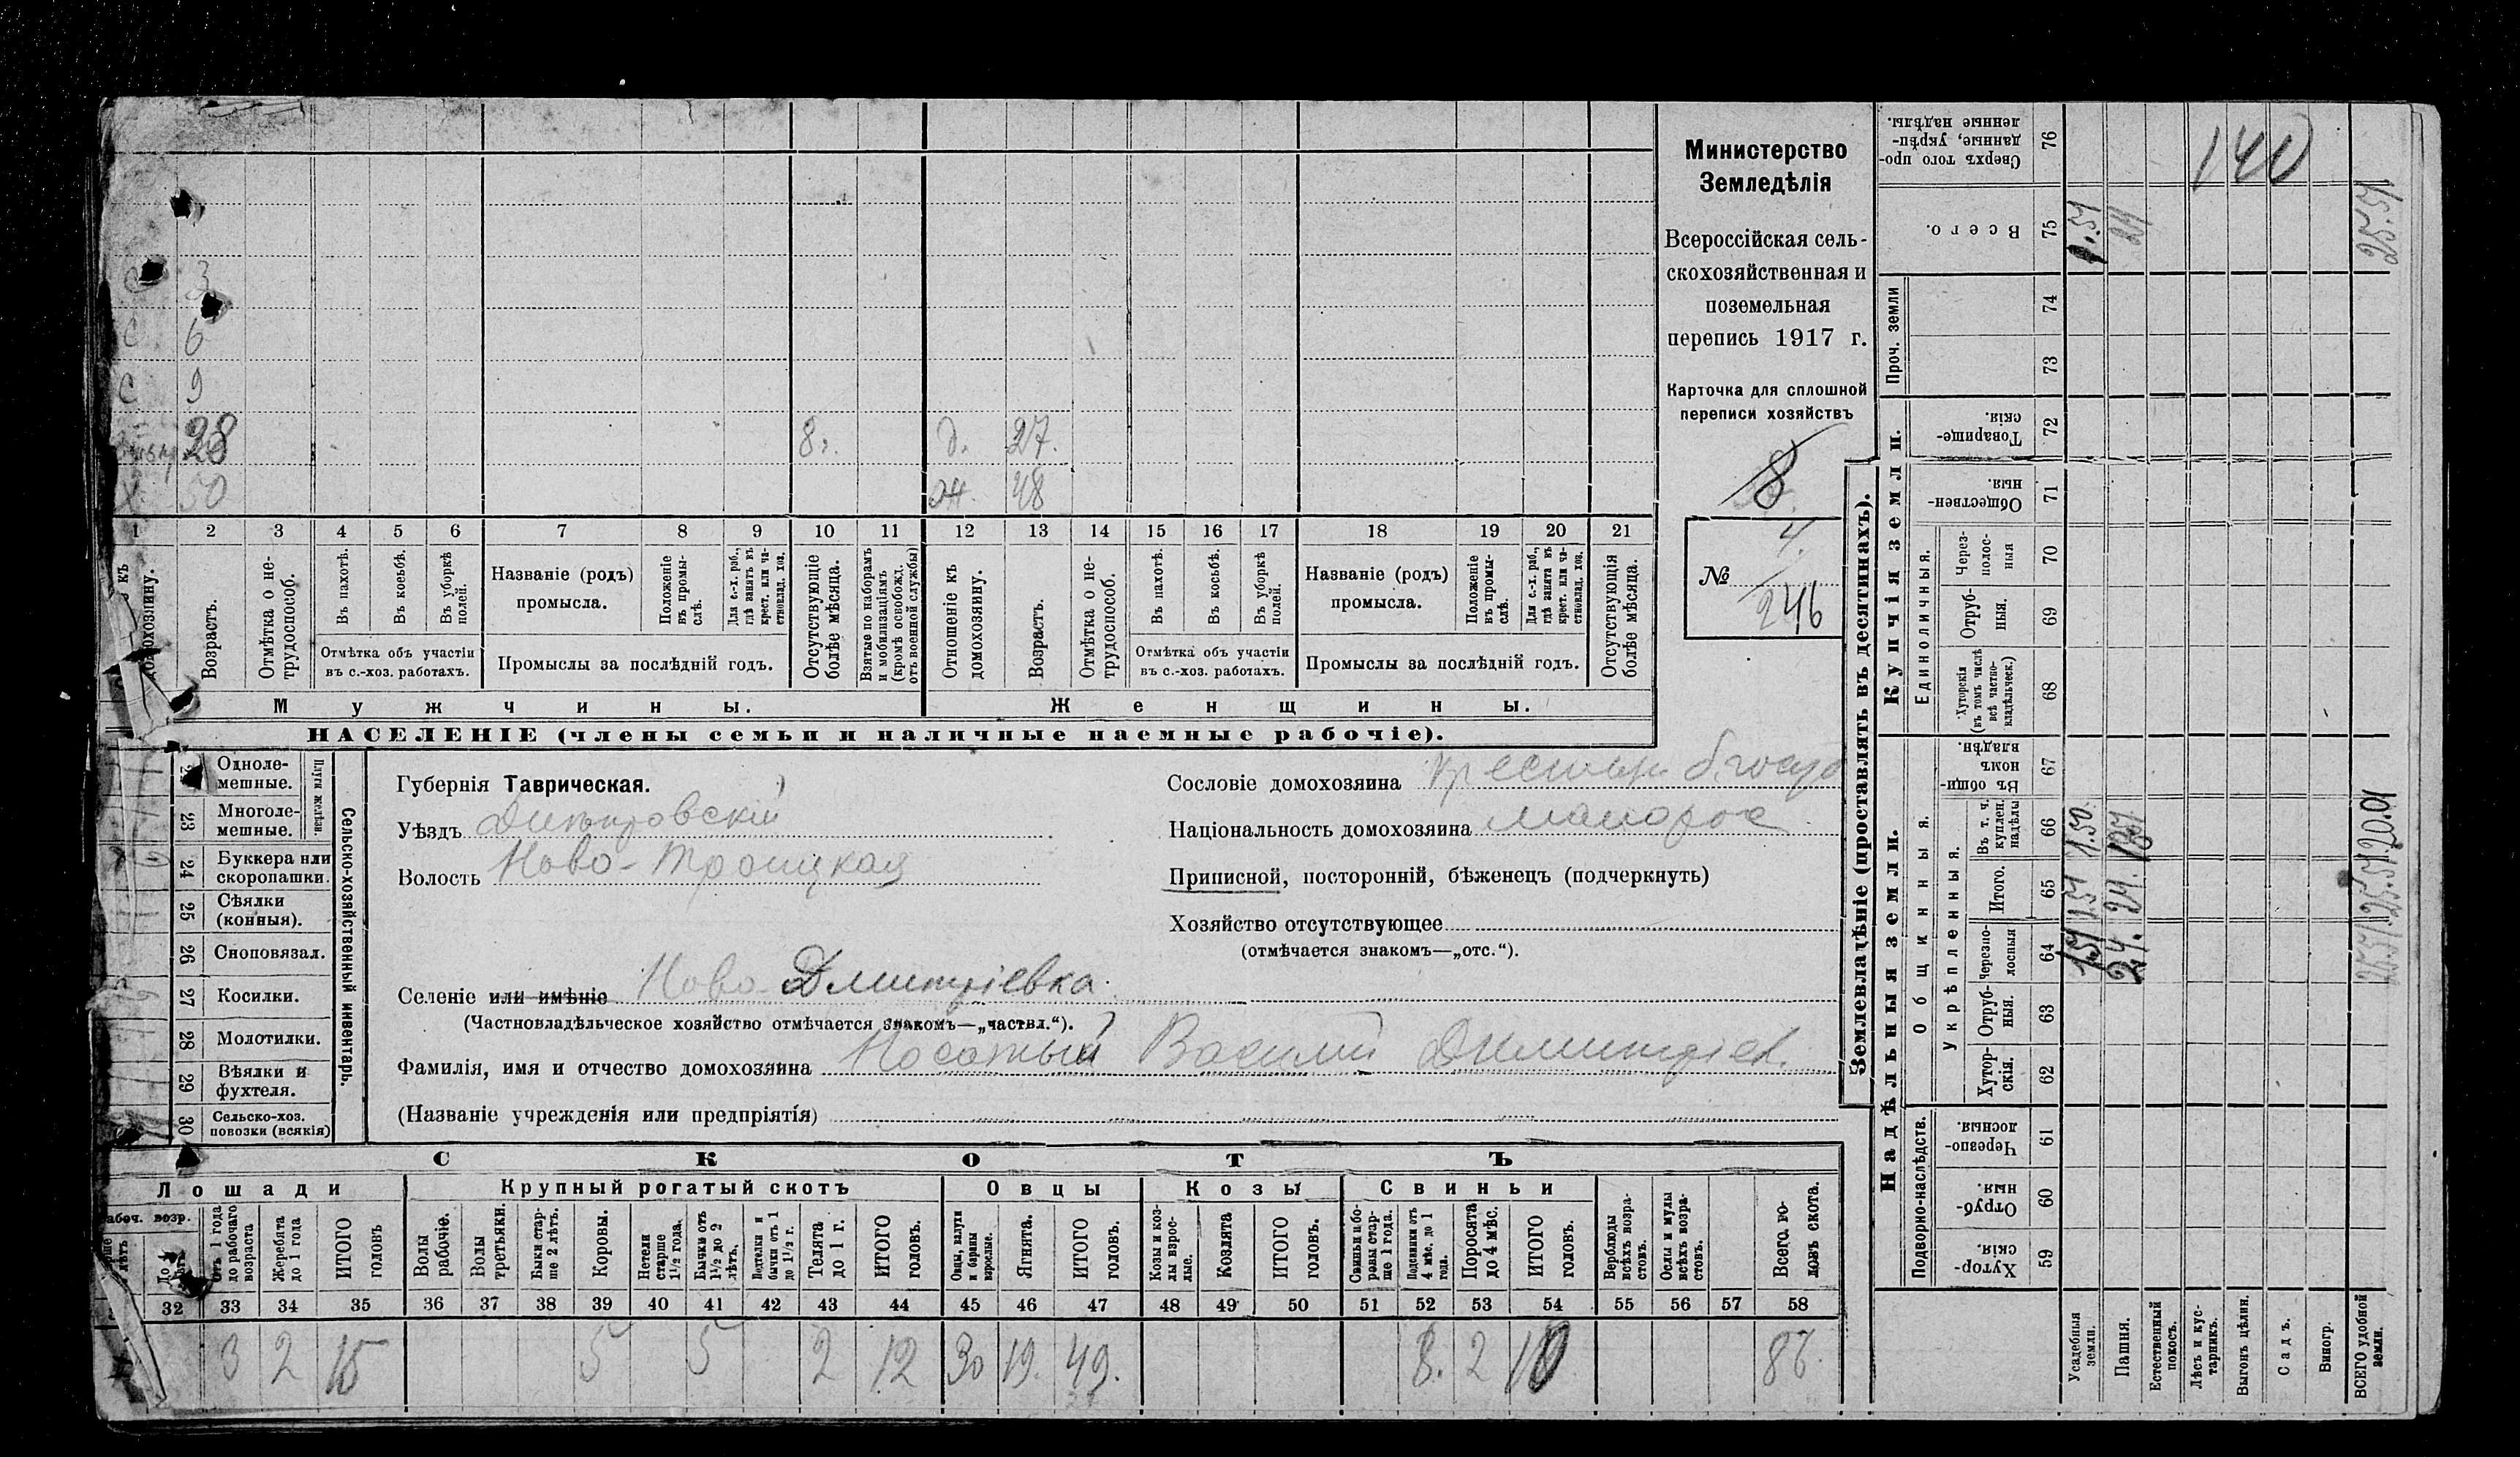 с 3
с 6
с 9
28 8. д. 27.
х 50 ж. 48
1 2 3 4 5 6 7 8 9 10 11 12 13 14 15 16 17 18 19 20 21
домохозяину.
Возрастъ.
Отмѣтка о не-
трудоспособ.
Въ пахотѣ.
Въ косьбѣ.
Въ уборкѣ
полей.
Отмѣтка объ участіи
въ с.-хоз. работахъ.
Названіе (родъ)
промысла.
Положеніе
въ промы-
слѣ.
Для с.-х. раб.,
гдѣ занятъ въ
крест. или ча-
стновлад. хоз.
Промыслы за послѣдній годъ.
Отсутствующіе
болѣе мѣсяца.
Взятые по наборамъ
и мобилизаціямъ
(кромѣ освобожд.
отъ военной службы)
Отношеніе къ
домохозяину.
Возрастъ.
Отмѣтка о не-
трудоспособ.
Въ пахотѣ.
Въ косьбѣ.
Въ уборкѣ
полей.
Отмѣтка объ участіи
въ с.-хоз. работахъ.
Названіе (родъ)
промысла.
Положеніе
въ промы-
слѣ.
Для с.-х. раб.,
гдѣ занята въ
крест. или ча-
стновлад. хоз.
Промыслы за послѣдній годъ.
Отсутствующія
болѣе мѣсяца.
Мужчины. Женщины.
НАСЕЛЕНІЕ (члены семьи и наличные наемные рабочіе).
Министерство
Земледѣлія
Всероссійская сель-
скохозяйственная и
поземельная
перепись 1917 г.
Карточка для сплошной
переписи хозяйствъ
8
4.
№ 246
Однole-
мешные.
Плуги желѣзн.
23 Многоле-
мешные.
24 Буккера или
скоропашки.
25 Сѣялки
(конныя).
26 Сноповязал.
27 Косилки.
28 Молотилки.
29 Вѣялки и
фухтеля.
30 Сельско-хоз.
повозки (всякія)
Сельско-хозяйственный инвентарь.
Губернія Таврическая.
Уѣздъ Днѣпровскій
Волость Ново-Троицкая
Селеніе или имѣніе Ново Дмитріевка.
(Частновладѣльческое хозяйство отмѣчается знакомъ—„частвл.“).
Фамилія, имя и отчество домохозяина Носатый Василій Дмитріев.
(Названіе учрежденія или предпріятія)
Сословіе домохозяина крестьян. б. госуд
Національность домохозяина малорос
Приписной, посторонній, бѣженецъ (подчеркнуть)
Хозяйство отсутствующее
(отмѣчается знакомъ—„отс.“).
СКОТЪ
Лошади Крупный рогатый скотъ Овцы Козы Свиньи
возр.
Отъ 1 года
до рабочаго
возраста
Жеребята
до 1 года
ИТОГО
головъ
Волы
рабочіе.
Волы
третьячки.
Быки стар-
ше 2 лѣтъ.
Коровы.
Нетели
старше
1½ года.
Бычки отъ
1½ до 2
лѣтъ.
Подтелки и
бычки отъ 1
до 1½ г.
Телята
до 1 г.
ИТОГО
головъ.
Овцы, валухи
и бараны
взрослые.
Ягнята.
ИТОГО
головъ.
Козы и коз-
лы взрос-
лые.
Козлята
ИТОГО
головъ.
Свиньи и бо-
ровы стар-
ше 1 года.
Подсвинки отъ
4 мѣс. до 1
года.
Поросята
до 4 мѣс.
ИТОГО
головъ.
Верблюды
всѣхъ возра-
стовъ.
Ослы и мулы
всѣхъ возра-
стовъ.
Всего го-
ловъ скота.
32 33 34 35 36 37 38 39 40 41 42 43 44 45 46 47 48 49 50 51 52 53 54 55 56 57 58
3 2 15 5 5 2 12 30 19. 49. 8. 2 10 86
Землевладѣніе (проставлять въ десятинахъ).
Надѣльныя земли. Купчія земли.
Проч. земли
Подворно-наслѣдств.
Общинныя.
Укрѣпленныя.
Единоличныя.
Хутор-
скія 59
Отруб-
ныя. 60
Черезпо-
лосныя. 61
Хутор-
скія. 62
Отруб-
ныя. 63
Черезпо-
лосныя 64
Итого. 65
Въ т. ч.
куплен.
надѣлы 66
Въ общин-
номъ
владѣн. 67
Хуторскія
(въ томъ числѣ
всѣ частно-
владѣльческ.) 68
Отруб-
ныя. 69
Через-
полос-
ныя 70
Обществен-
ныя. 71
Товарище-
скія. 72
73
74
Всего. 75
Сверхъ того про-
данные, укрѣп-
ленные надѣлы. 76
Усадебныя
земли. 1.51 1.51 1.50 1.51
Пашня. 24. 24. 24
Естественный
покосъ.
Лѣсъ и кус-
тарникъ.
Выгонъ цѣлин.
Садъ.
Виногр.
ВСЕГО удобной
земли. 25.51 25.51 20.01 25.51
140